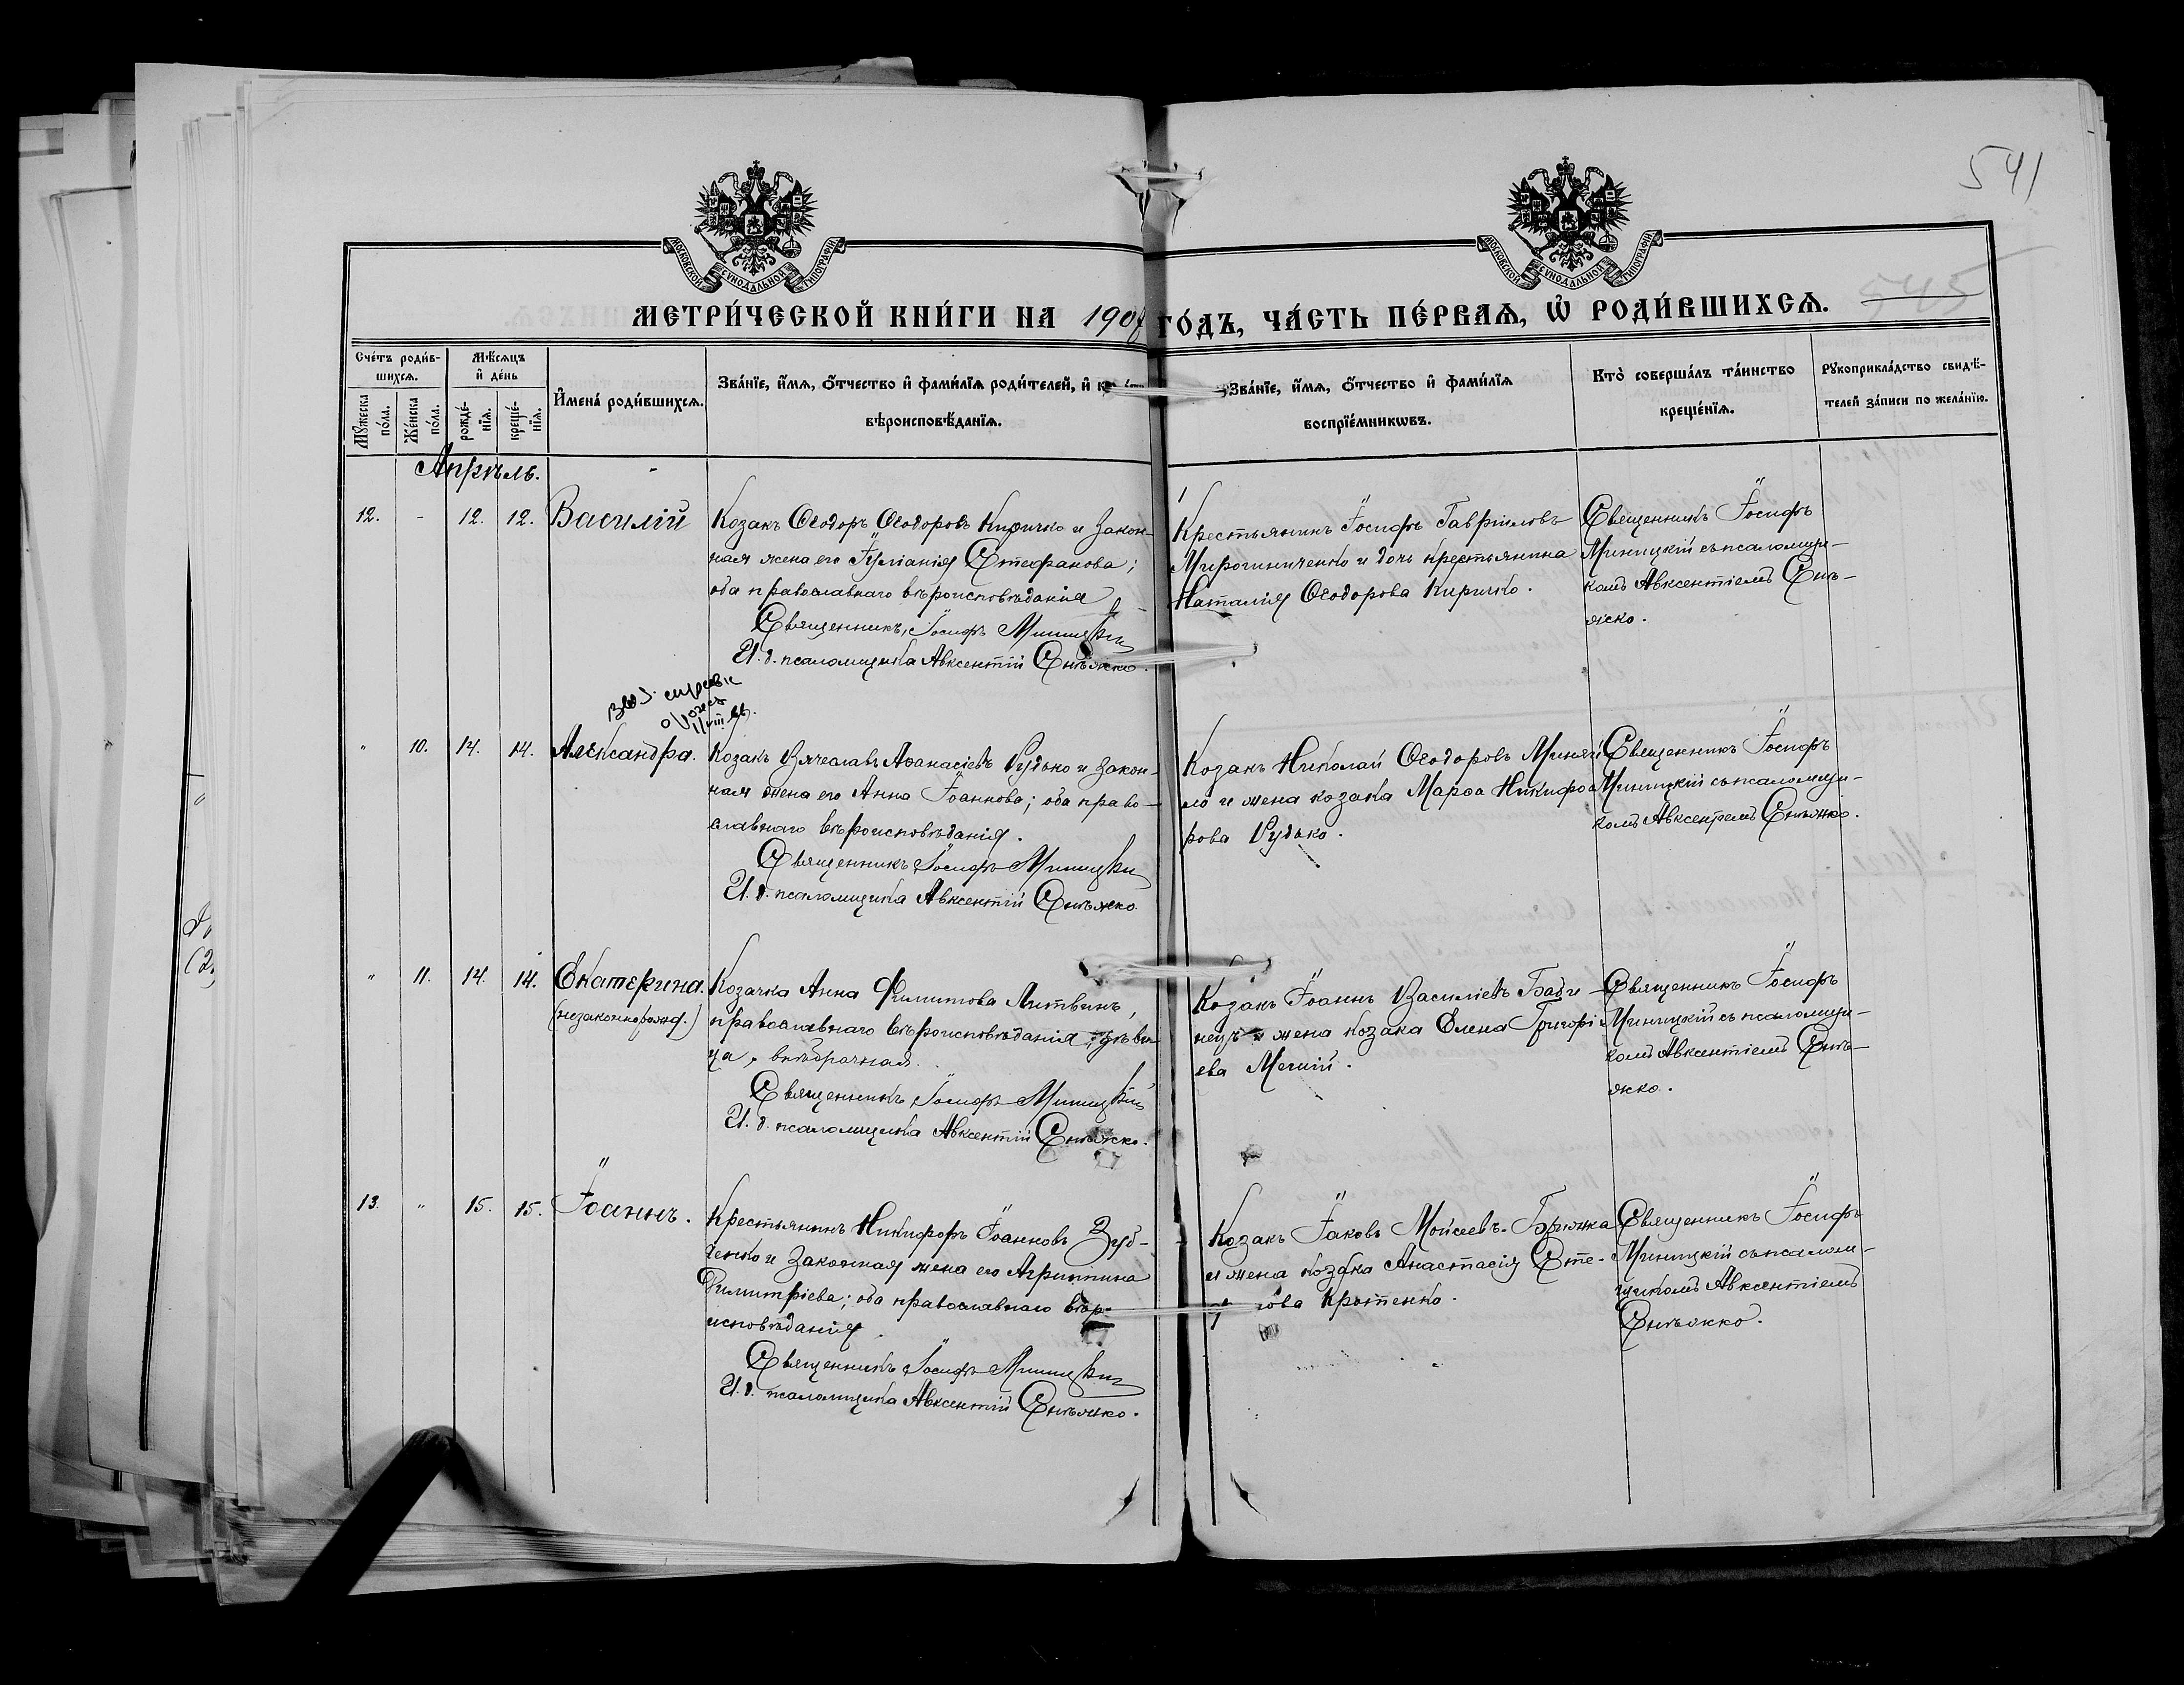 541
545
МОСКОВСКОЙ СУНОДАЛЬНОЙ ТИПОГРАФІИ
МОСКОВСКОЙ СУНОДАЛЬНОЙ ТИПОГРАФІИ
МЕТРИ́ЧЕСКОЙ КНИ́ГИ НА 190 ГО́ДЪ, ЧА́СТЬ ПЕ́РВАѦ, Ѡ҆ РОДИ́ВШИХСѦ.
Сче́тъ роди́в-
шихсѧ.
Мꙋ́жеска по́ла.
Же́нска по́ла.
Мѣ́сѧцъ
и҆ де́нь
рожде́-
нїѧ.
креще́-
нїѧ.
И҆мена̀ роди́вшихсѧ.
Зва́нїе, и҆́мѧ, ѻ҆́тчество и҆ фами́лїѧ роди́телей, и҆
вѣроисповѣ́данїѧ.
Зва́нїе, и҆́мѧ, ѻ҆́тчество и҆ фами́лїѧ
воспрїе́мникѡвъ.
Кто̀ соверша́лъ та́инство
креще́нїѧ.
Рꙋкоприкла́дство свидѣ́-
телей за́писи по жела́нїю.
Апрѣль.
12. - 12. 12. Василій
Козакъ Ѳеодоръ Ѳеодоровъ Киричко и закон-
ная жена его Іуліанія Стефанова;
оба православнаго вѣроисповѣданія
Священникъ Іосифъ Миницкій
И. д. псаломщика Авксентій Снѣжко.
Крестьянинъ Іосифъ Гавріиловъ
Мирошниченко и дочь крестьянина
Наталія Ѳеодорова Киричко.
Священникъ Іосифъ
Миницкій съ псаломщи-
комъ Авксентіемъ Снѣ-
жко.
" 10. 14. 14. Александра.
Козакъ Вячеславъ Аѳанасіевъ Рудько и закон-
ная жена его Анна Іоаннова; оба право-
славнаго вѣроисповѣданія.
Священникъ Іосифъ Миницкій
И. д. псаломщика Авксентій Снѣжко.
Козакъ Николай Ѳеодоровъ Миняй
ло и жена козака Марѳа Никифо
рова Рудько.
Священникъ Іосифъ
Миницкій съ псаломщи-
комъ Авксентіемъ Снѣжко.
" 11. 14. 14. Екатерина.
(незаконнорожд.)
Козачка Анна Филиппова Литвинъ,
православнаго вѣроисповѣданія, дѣви
ца, внѣбрачная.
Священникъ Іосифъ Миницкій
И. д. псаломщика Авксентій Снѣжко.
Козакъ Іоаннъ Василіевъ
нецъ и жена козака Елена Григорі
ева
Священникъ Іосифъ
Миницкій съ псаломщи-
комъ Авксентіемъ Снѣ-
жко.
13. " 15. 15. Іоаннъ.
Крестьянинъ Никифоръ Іоанновъ Зуб-
ченко и законная жена его Агриппина
Димитріева; оба православнаго вѣро-
исповѣданія.
Священникъ Іосифъ Миницкій
И. д. псаломщика Авксентій Снѣжко.
Козакъ Іаковъ Мойсеевъ
и жена козака Анастасія Сте-
нова Кротенко.
Священникъ Іосифъ
Миницкій съ псалом-
щикомъ Авксентіемъ
Снѣжко.